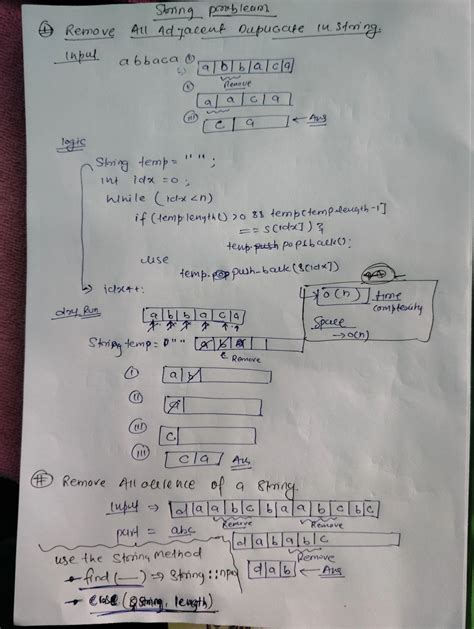 String problem
① Remove All Adjacent Duplicate in String.
Input abbaca ① a b b a c a
Remove
ⅱ a a c a
ⅲ c a ← Ans
logic
String temp = " ";
int idx = 0;
while (idx<n)
if (temp.length() > 0 && temp[temp.length-1]
== s[idx]) {
temp.push pop_back();
else
temp.pop push-back(s[idx])
idx++;
o(n) time
complexity
Space
→ o(n)
dry Run a b b a c a
String temp = 0 " " a b a
Remove
ⅰ a b
ⅱ a
ⅲ c
ⅲ c a Ans
# Remove All occurence of a String
Input → d a a b c b a a b c b c
Remove Remove
part = abc
d a b a b c
use the String method
Remove
find (—) => String::npo
d a b ← Ans
(String, length)